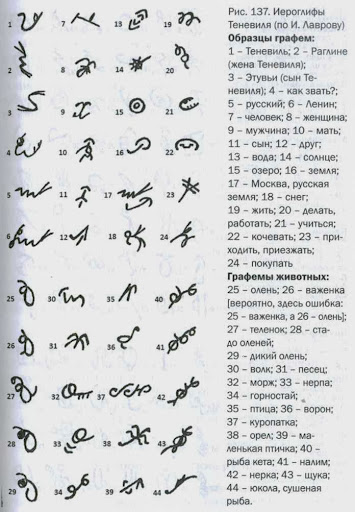 Рис. 137. Иероглифы
Теневиля (по И. Лаврову)
Образцы графем:
1 – Теневиль; 2 – Раглине
(жена Теневиля);
3 – Этувьи (сын Те-
невиля); 4 – как звать?;
5 – русский; 6 – Ленин;
7 – человек; 8 – женщина;
9 – мужчина; 10 – мать;
11 – сын; 12 – друг;
13 – вода; 14 – солнце;
15 – озеро; 16 – земля;
17 – Москва, русская
земля; 18 – снег;
19 – жить; 20 – делать,
работать; 21 – учиться;
22 – кочевать; 23 – при-
ходить, приезжать;
24 – покупать
Графемы животных:
25 – олень; 26 – важенка
[вероятно, здесь ошибка:
25 – важенка, а 26 – олень];
27 – теленок; 28 – ста-
до оленей;
29 – дикий олень;
30 – волк; 31 – песец;
32 – морж; 33 – нерпа;
34 – горностай;
35 – птица; 36 – ворон;
37 – куропатка;
38 – орел; 39 – ма-
ленькая птичка; 40 –
рыба кета; 41 – налим;
42 – нерка; 43 – щука;
44 – юкола, сушеная
рыба.
1 7 13 19
2 8 14 20
3 9 15 21
4 10 16 22
5 11 17 23
6 12 18 24
25 30 35 40
26 31 36 41
27 32 37 42
28 33 38 43
29 34 39 44